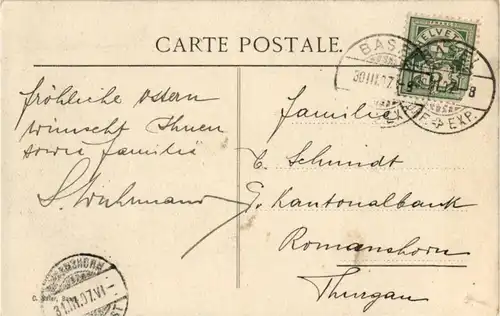 CARTE POSTALE.
HELVETIA
BAS
30.III.07.
8
EXP.
fröhliche Ostern
wünscht Ihnen
sowie Familie
Familie
C. Schmidt
Kantonalbank
Romanshorn
Thurgau
ROMANSHORN
31.III.07.VI